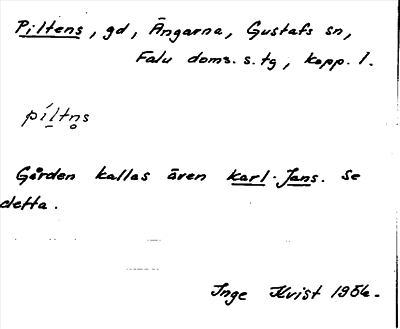 Piltens, gd, Ängarna, Gustafs sn,
Falu doms. s. tg, Kopp. l.
píltn̥s
Gården kallas även Karl-Jans. Se
detta.
Inge Kvist 1956.